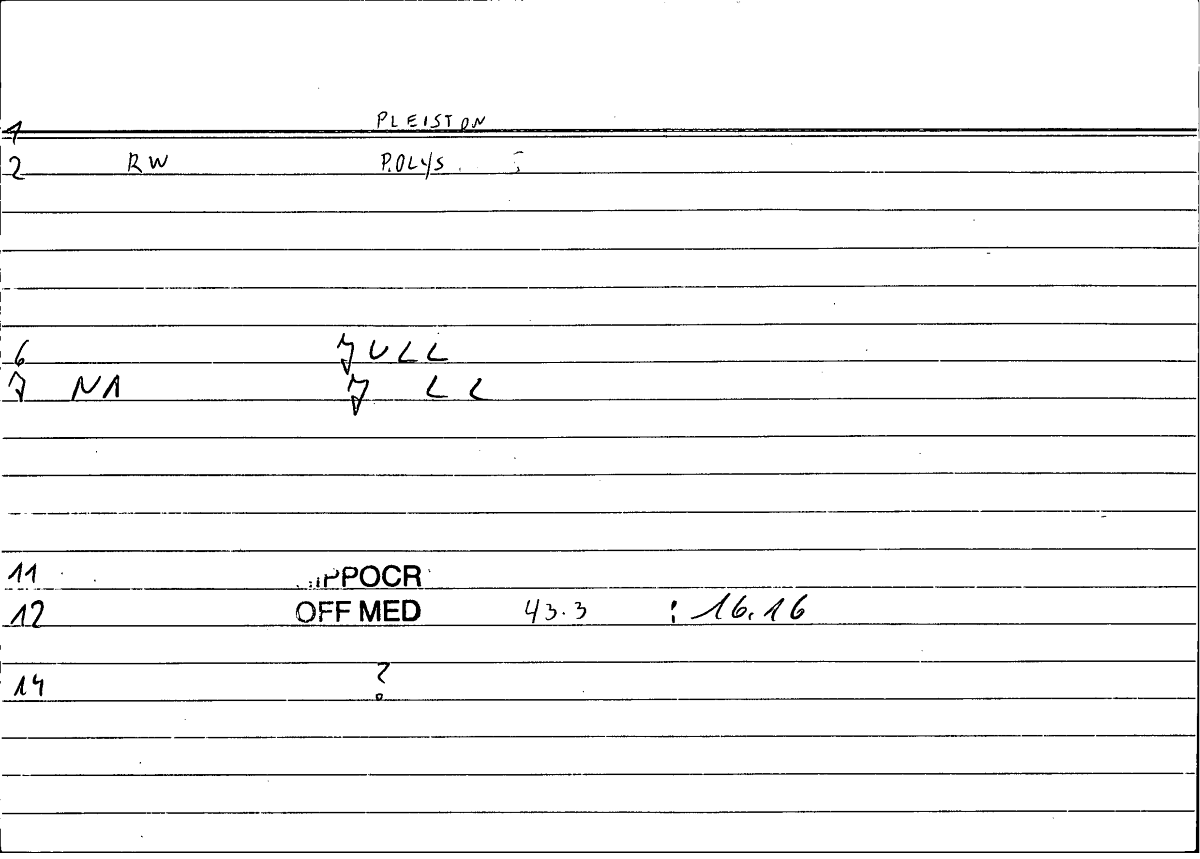 1 PLEISTON
2 RW POLYS
6 JULL
7 NA J LL
11 HIPPOCR
12 OFF MED 43.3 : 16.16
14 ?